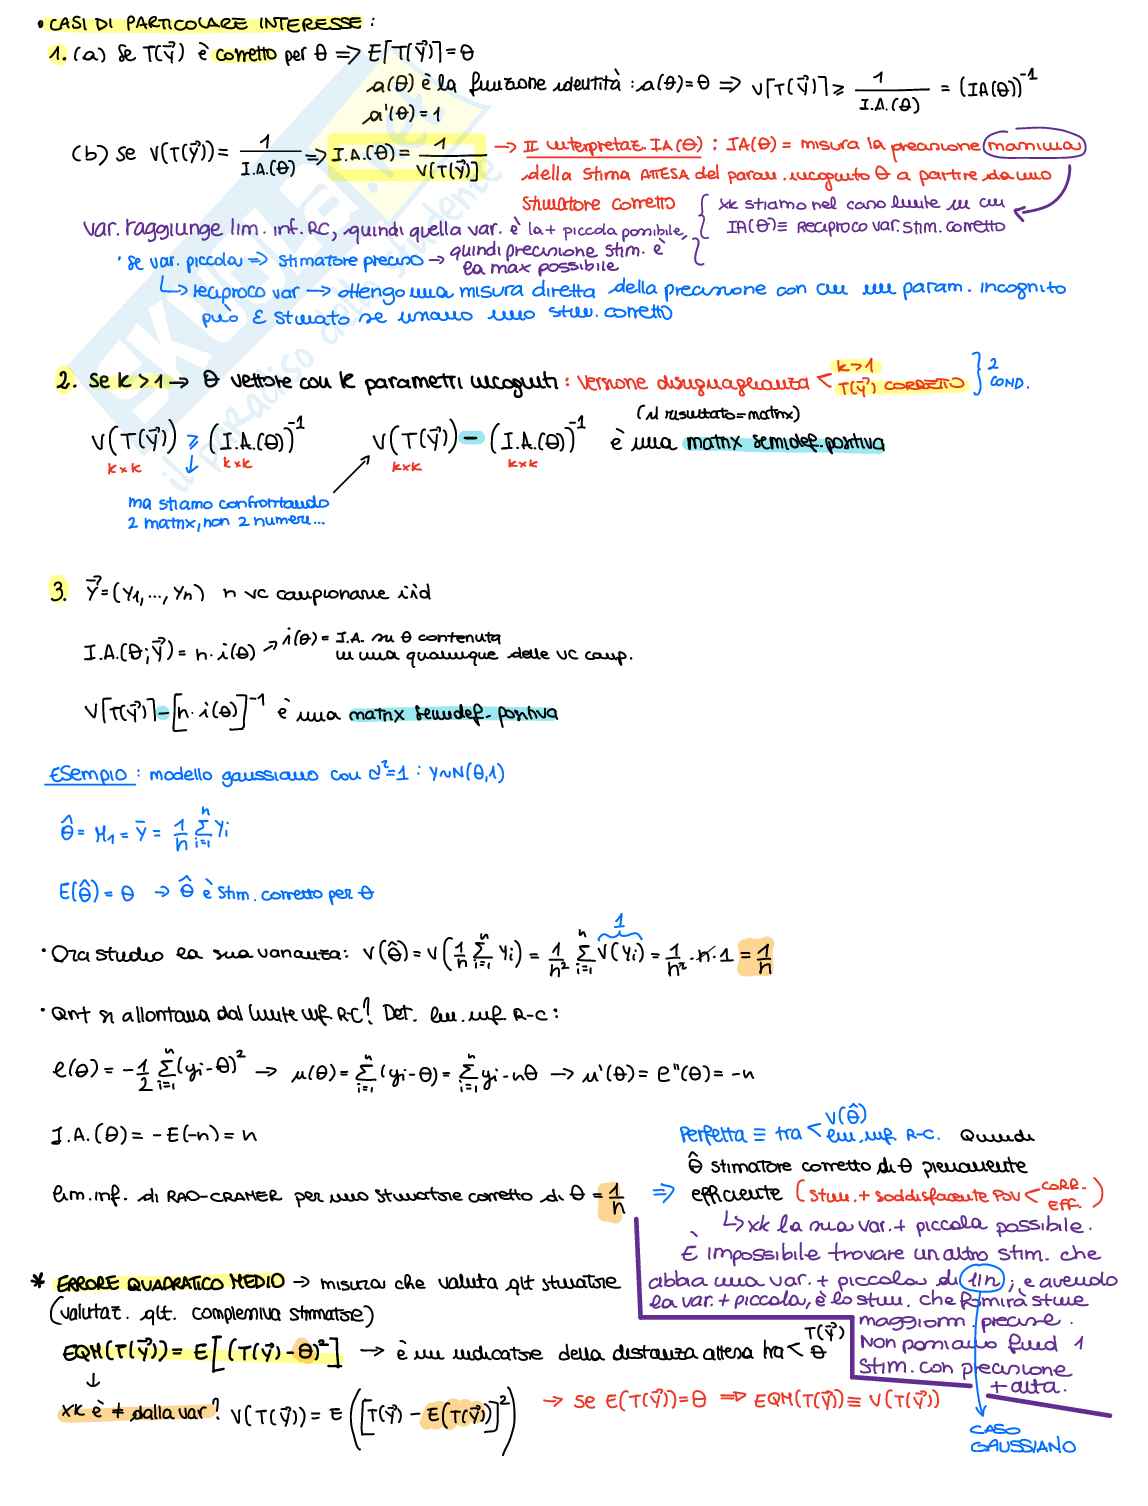 • CASI DI PARTICOLARE INTERESSE :
1. (a) Se T(Y⃗) è corretto per θ ⟹ E[T(Y⃗)] = θ
a(θ) è la funzione identità : a(θ)=θ ⟹ V[T(Y⃗)] ≥ 1/I.A.(θ) = (IA(θ))⁻¹
a'(θ) = 1
(b) se V(T(Y⃗)) = 1/I.A.(θ) ⟹ I.A.(θ) = 1/V[T(Y⃗)] → II interpretaz. IA(θ) : IA(θ) = misura la precisione massima
della stima ATTESA del param. incognito θ a partire da uno
stimatore corretto
{ xk stiamo nel caso limite in cui
IA(θ) ≡ Reciproco var. stim. corretto
var. raggiunge lim. inf. RC, quindi quella var. è la + piccola possibile,
· se var. piccola ⟹ stimatore preciso → quindi precisione stim. è
la max possibile
↳ reciproco var → ottengo una misura diretta della precisione con cui un param. incognito
può E stimato se usiamo uno stim. corretto
2. Se k > 1 → θ vettore con k parametri incogniti : versione disuguaglianza < k>1
T(Y⃗) CORRETTO } 2 COND.
(il risultato = matrix)
V(T(Y⃗)) ≥ (I.A.(θ))⁻¹ V(T(Y⃗)) − (I.A.(θ))⁻¹ è una matrix semidef. positiva
k×k k×k k×k k×k
ma stiamo confrontando
2 matrix, non 2 numeri...
3. Y⃗ = (Y₁, ..., Yn) n vc campionarie iid
I.A.(θ; Y⃗) = n · i(θ) → i(θ) = I.A. su θ contenuta
in una qualunque delle vc camp.
V[T(Y⃗)] − [n · i(θ)]⁻¹ è una matrix semidef. positiva
Esempio : modello gaussiano con σ² = 1 : Y∼N(θ,1)
θ̂ = M₁ = Ȳ = 1/n Σⁿᵢ₌₁ Yi
E(θ̂) = θ → θ̂ è stim. corretto per θ
· Ora studio la sua varianza: V(θ̂) = V(1/n Σⁿᵢ₌₁ Yi) = 1/n² Σⁿᵢ₌₁ V(Yi) = 1/n² · n · 1 = 1/n
1
· Qnt si allontana dal limite inf. R-C? Det. lim. inf R-C :
ℓ(θ) = −1/2 Σⁿᵢ₌₁ (yi − θ)² → u(θ) = Σⁿᵢ₌₁ (yi − θ) = Σⁿᵢ₌₁ yi − nθ → u'(θ) = ℓ''(θ) = −n
I.A.(θ) = −E(−n) = n
lim. inf. di RAO-CRAMER per uno stimatore corretto di θ = 1/n ⟹
Perfetta ≡ tra < V(θ̂)
lim. inf R-C. Quindi
θ̂ stimatore corretto di θ pienamente
efficiente ( stim. + soddisfacente POV < CORR.
EFF. )
↳ xk la sua var. + piccola possibile.
È impossibile trovare un altro stim. che
abbia una var. + piccola di 1/n ; e avendo
la var. + piccola, è lo stim. che fornirà stime
maggiorm. precise.
Non possiamo find 1
stim. con precisione
+ alta.
CASO
GAUSSIANO
* ERRORE QUADRATICO MEDIO → misura che valuta qlt stimatore
(valutaz. qlt. complessiva stimatore)
EQM(T(Y⃗)) = E[(T(Y⃗) − θ)²] → è un indicatore della distanza attesa tra < T(Y⃗)
θ
↓
xk è ≠ dalla var? V(T(Y⃗)) = E([T(Y⃗) − E(T(Y⃗))]²) → se E(T(Y⃗)) = θ ⟹ EQM(T(Y⃗)) ≡ V(T(Y⃗))
SKUOLA.net
il paradiso dello studente